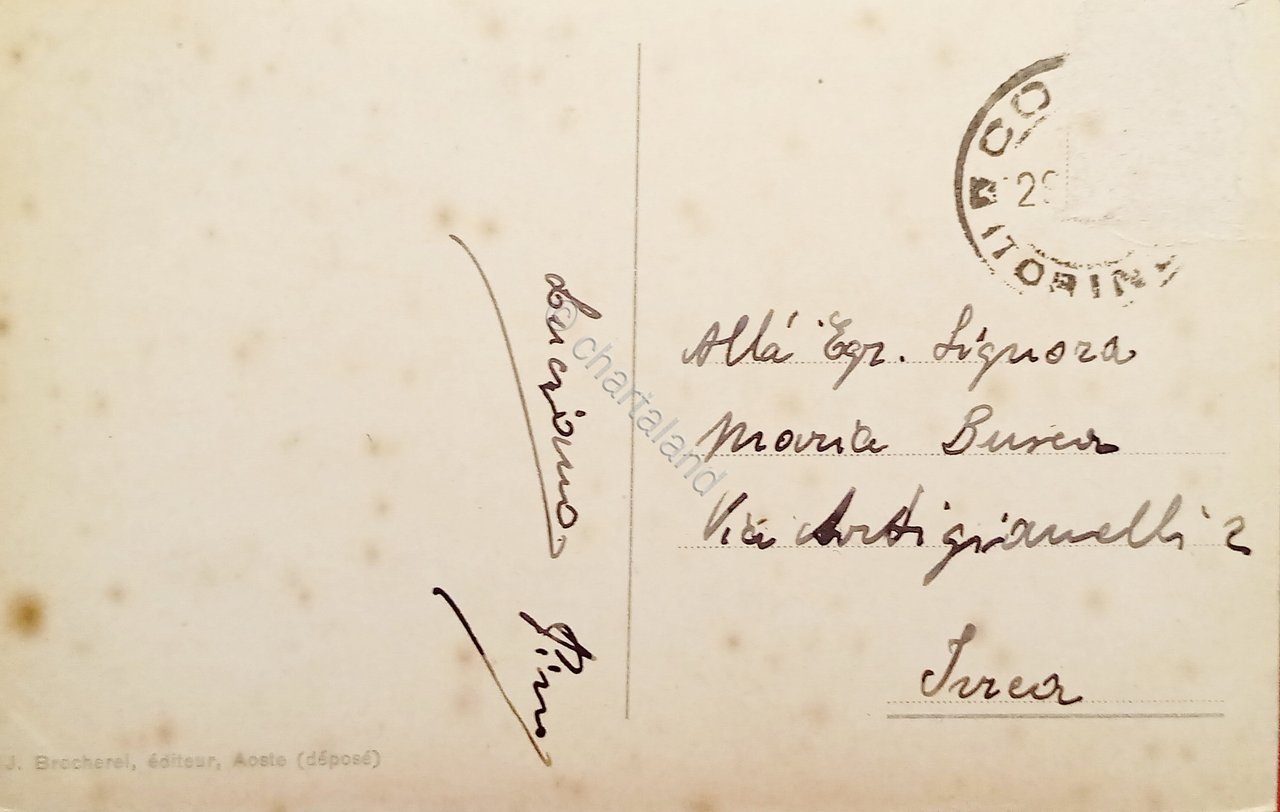 Luciano
Pino
Alla Egr. Signora
Maria Busca
Via Artigianelli 2
Ivrea
CO
29
J. Brocherel, éditeur, Aoste (déposé)
© chartaland